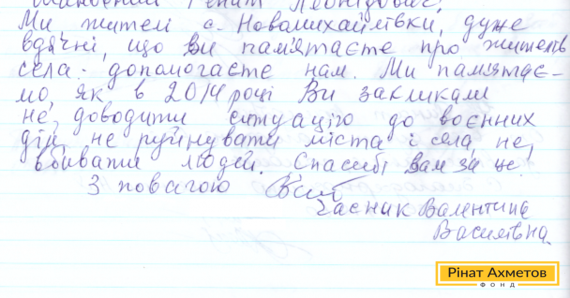 Шановний Рінат Леонідович,
Ми жителі с. Новомихайлівки, дуже
вдячні, що Ви пам'ятаєте про жителів
села допомагаєте нам. Ми пам'ятає-
мо, як в 2014 році Ви закликали
не доводити ситуацію до воєнних
дій, не руйнувати міста і села, не
вбивати людей. Спасибі Вам за це.
З повагою
Чаєник Валентина
Василівна.
Рінат Ахметов
ФОНД